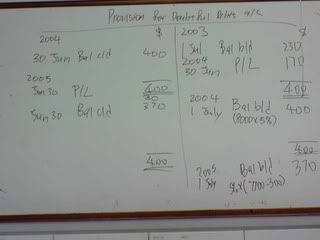 Provision for Doubtful Debts a/c
$
$
2004
30 Jun Bal c/d 400
400
2005
Jun 30 P/L 30
Jun 30 Bal c/d 370
400
2003
1 Jul Bal b/d 230
2004
30 Jun P/L 170
400
2004
1 July Bal b/d 400
(8000x5%)
400
2005 Bal b/d 370
1 July